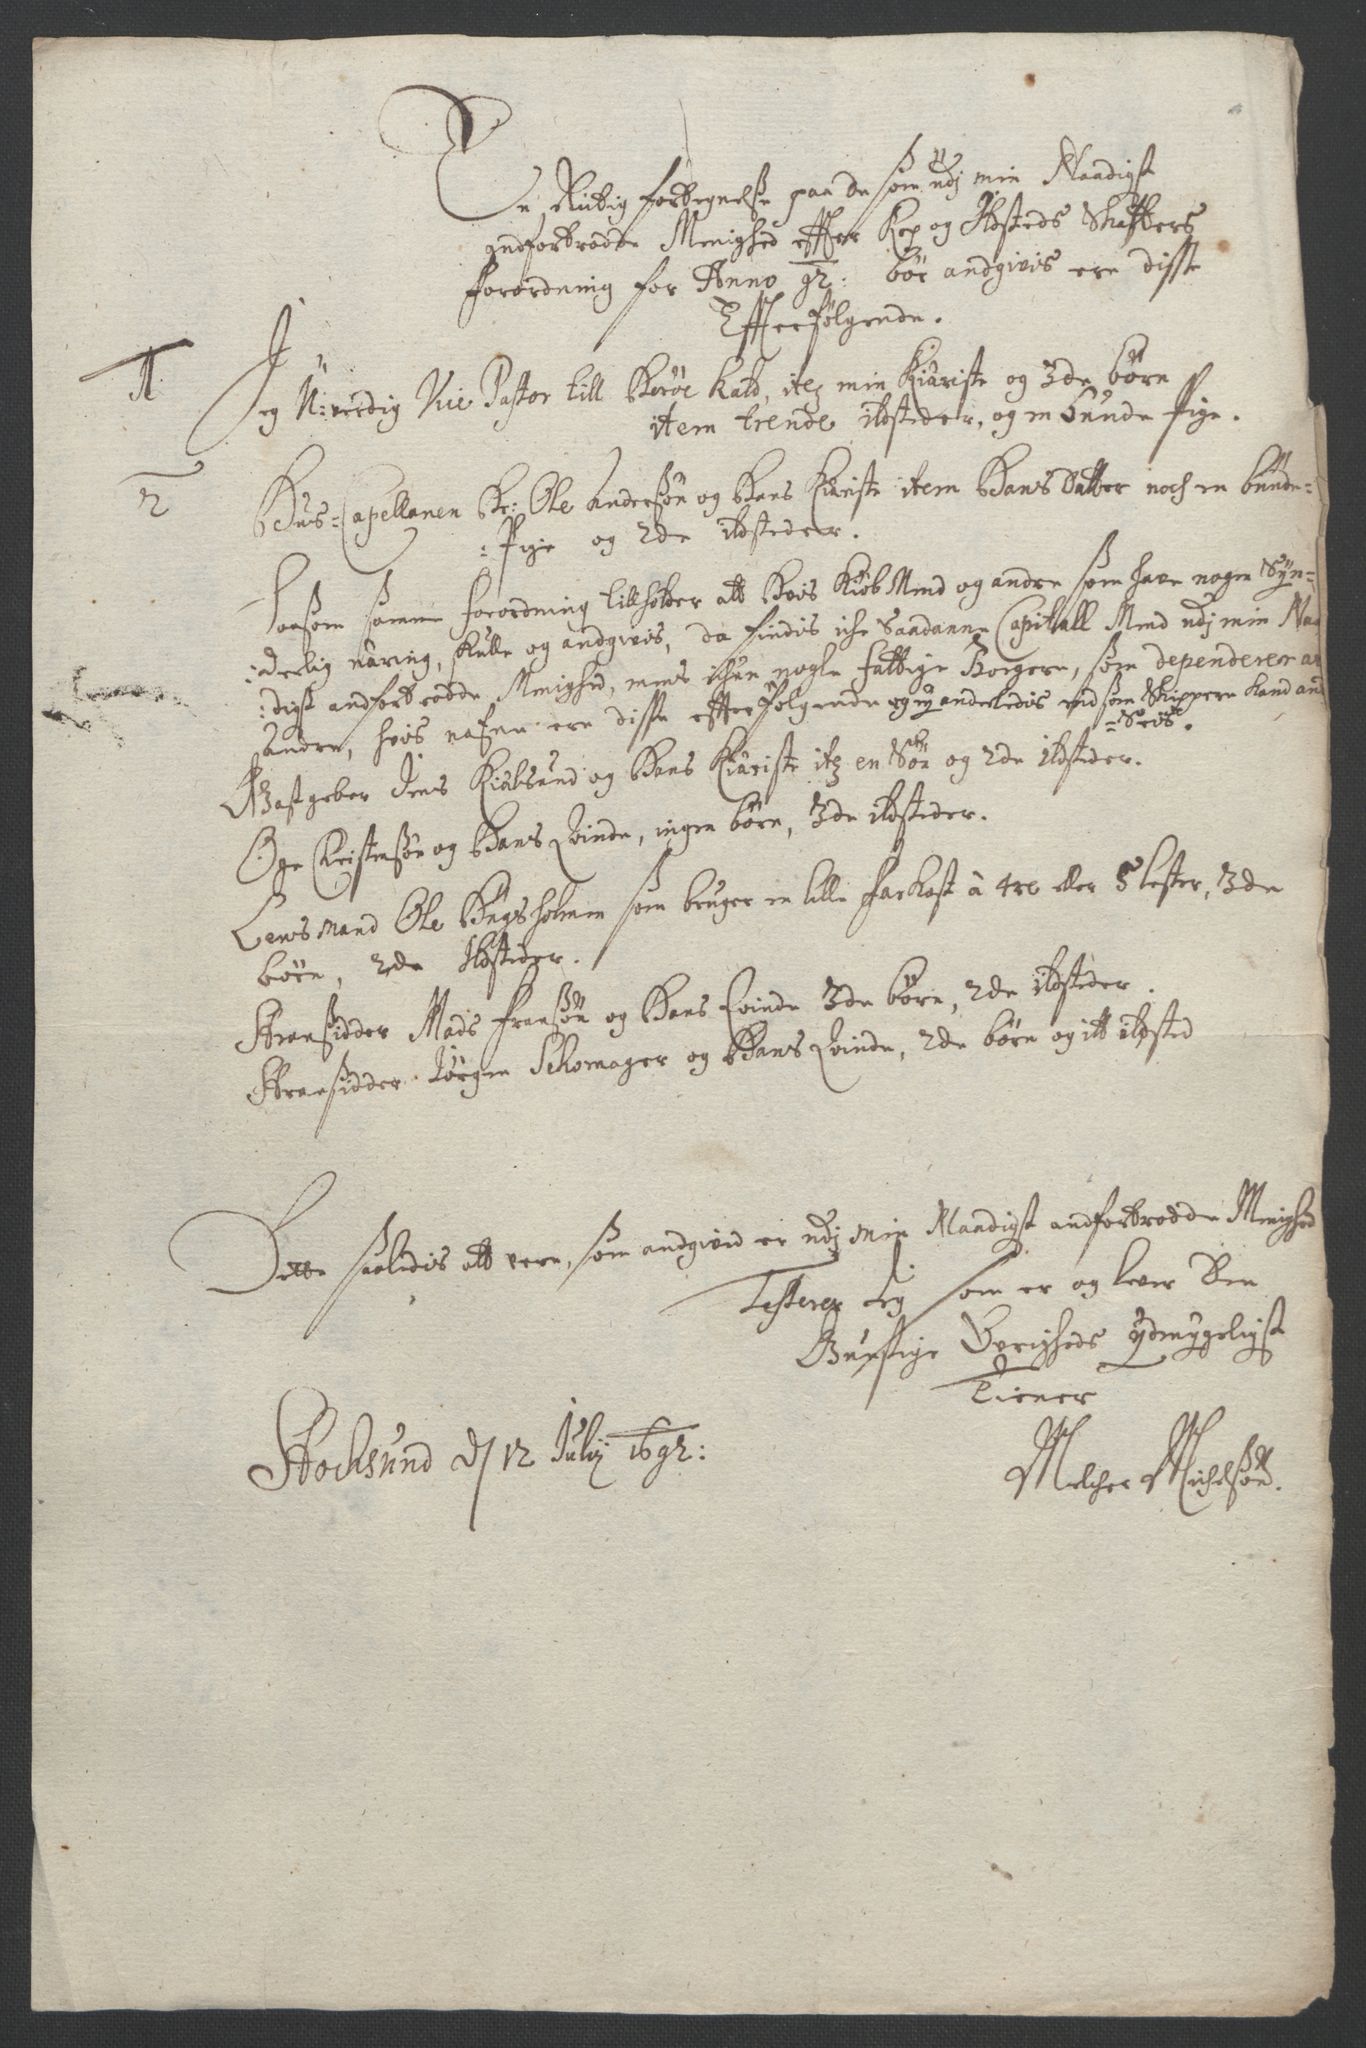 En Rictig fortegnelse paa de som udj min Naadigst
andfortrodde Menighed effter Kop og Ildsteds Skatters
forordning for Anno 92: bör andgivis ere disse
Effterfölgende.
1 Jeg U-verdig Vice Pastor till Steröe Kald, itz min Kiæriste og 3de börn
item trende ildsteder, og en bunde Pige.
2 Hus-Capellanen Hr: Ole Andersön og Hans Kiæriste item Hans Datter noch en bunde-
-Pige og 2de ildsteder.
Saasom samme forordning tillholder att hvis Kiöb Mend og andre som have nogen Sÿn-
-derlig næring, skulle og andgivis, da findis iche saadanne Capitall Mend udj min Naa
-digst andfortrodde Menighed, mens ichun nogle fattige Borgere, som dependerer aff
andre, hvis nafne ere disse effterfölgende og ej anderledis end som Skippere Kand and
-Seis.
Gastgeber Jens Kialsund og Hans Kiæriste itz en Sön og 2de ildsteder.
Ove Christensön og Hans Qvinde, ingen börn, 3de ildsteder.
Lensmand Ole Bugsholmen som bruger en lille farkost à 4re eller 5 lester, 3de
börn, 2de Ildsteder.
Stransidder Mads Fransön og Hans Qvinde 3de börn, 2de ildsteder.
Stransidder Jörgen Schomager og Hans Qvinde, 2de börn og itt ildsted
Dette saaledis att vere, som andgived er udj min Naadigst andfortrodde Menighed
Testerer Jeg som er og lever Den
Gunstige Övrigheds ÿdmygeligst
Tiener
Stocksund d/ 12 Julij 1692:
Melcher Michelsön.